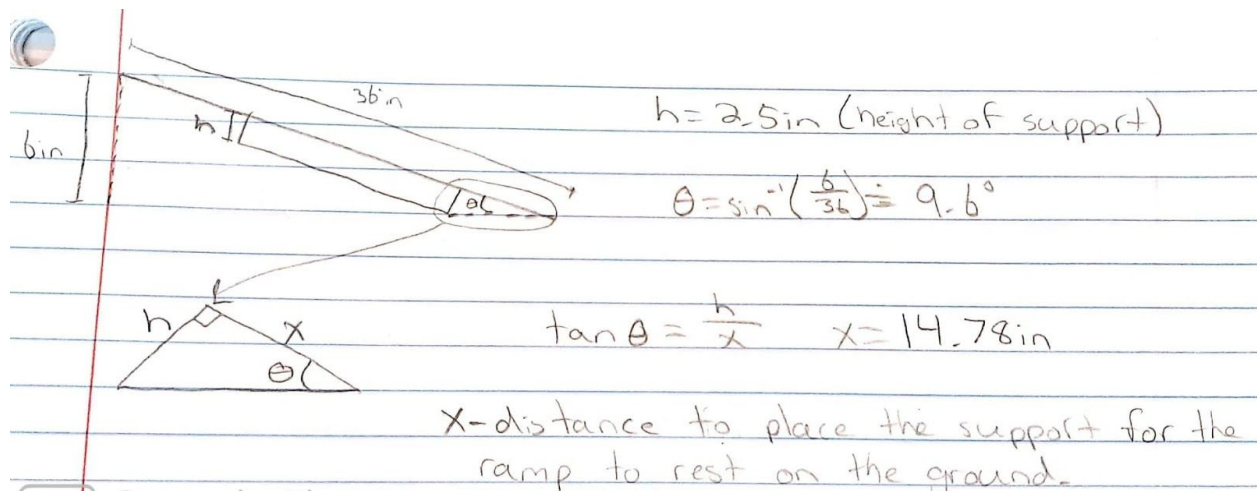 36in
h
6in
θ
h = 2.5in (height of support)
θ = sin⁻¹(6/36) ≐ 9.6°
h
x
θ
tan θ = h/x x = 14.78in
x - distance to place the support for the
ramp to rest on the ground.